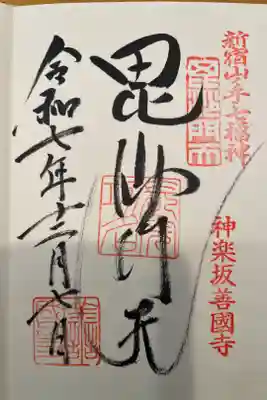 新宿山手七福神
神楽坂善國寺
毘沙门天
令和七年十二月七日